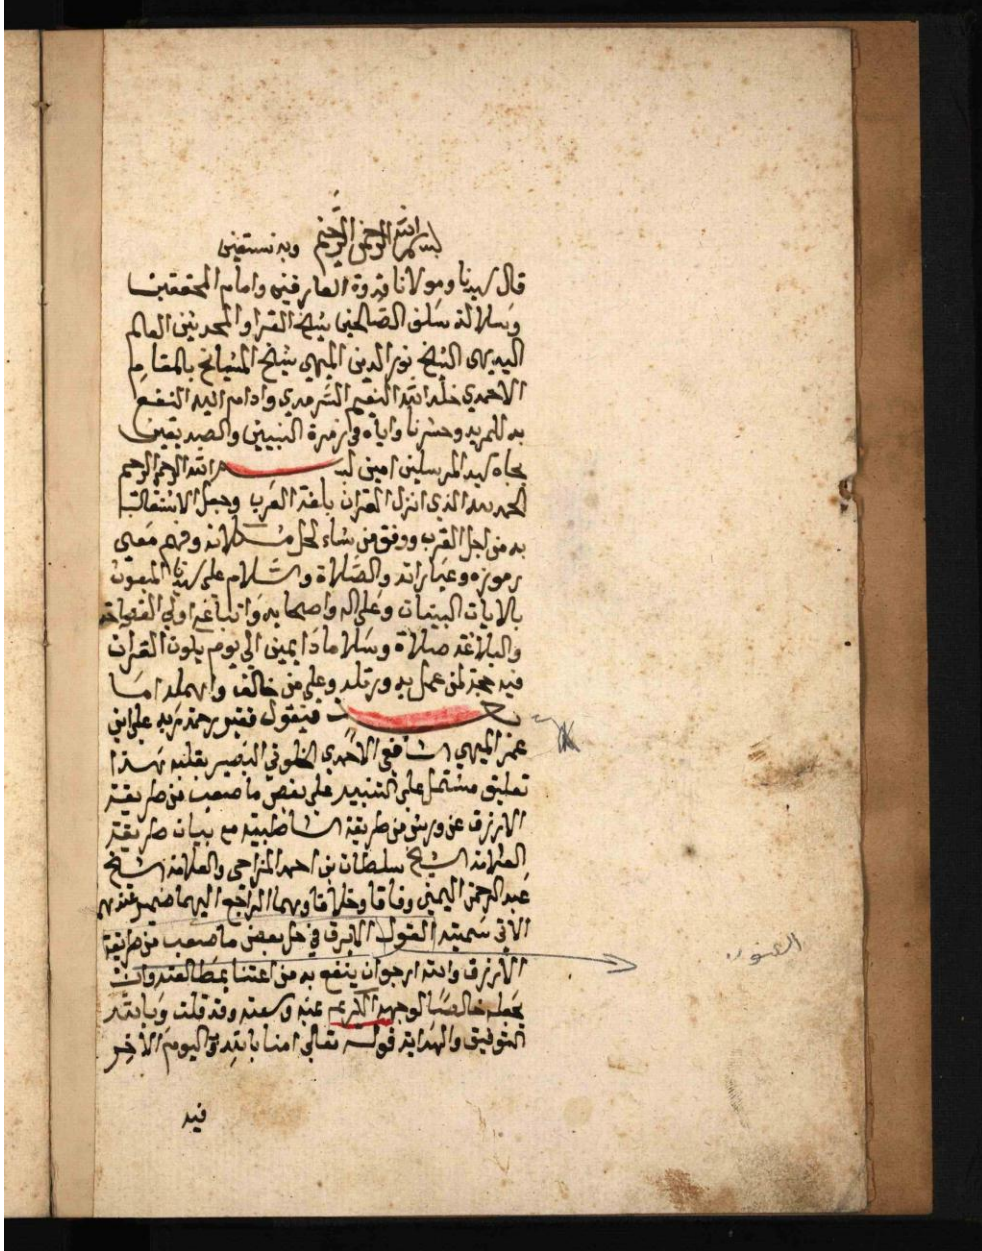 بسم الله الرحمن الرحيم وبه نستعين
قال سيدنا ومولانا قدوة العارفين وامام المحققين
وسلالة سلف الصالحين شيخ القرا والمحدثين العالم
الشيخ نور الدين الميهي شيخ المشايخ بالمقام
الاحمدي خلد الله النعيم السرمدي وادام اليه النفع
به للمريد وحشرنا واياه في زمرة النبيين والصديقين
بجاه سيد المرسلين امين بسم الله الرحمن الرحيم
الحمد لله الذي انزل القران بلغة العرب وجعل الاشتغال
به من اجل القرب ووفق من شاء لحل مشكلاته وفهم معنى
رموزه وعباراته والصلاة والسلام على سيدنا المبعوث
بالايات البينات وعلى اله واصحابه واتباعه اولي الفصاحة
والبلاغة صلاة وسلاما دايمين الي يوم يكون القران
فيه حجة لمن عمل به ورتله وعلى من خالف واهمله اما
بعد فيقول فقير رحمة ربه علي ابن
عمر الميهي الشافعي الاحمدي الخلوتي البصير بقلبه هذا
تعليق مشتمل على التنبيه على بعض ما صعب من طريقة
الازرق عن ورش من طريقة الشاطبية مع بيان طريقة
العلامة الشيخ سلطان بن احمد المزاحي والعلامة الشيخ
عبد الرحمن اليمني وفاقا وخلافا وهما الراجع اليهما
الاتي سميته القول الابرق في حل بعض ما صعب من طريقة
الازرق والله ارجو ان ينفع به من اعتنا بمطالعته وان
يجعله خالصا لوجهه الكريم عنه وسعته وقد قلت وبالله
التوفيق والهداية قوله تعالى امنا بالله وباليوم الاخر
فيه
العنوان